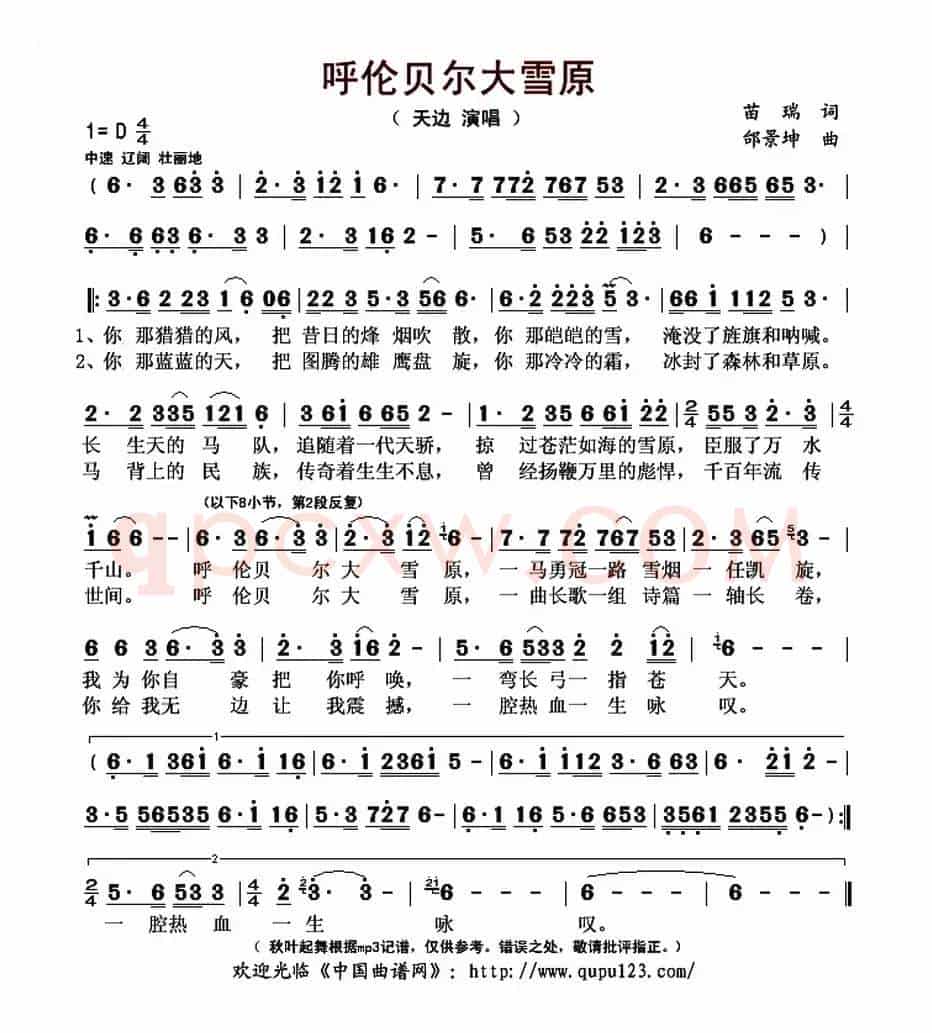 呼伦贝尔大雪原
（ 天边 演唱 ）
苗 瑞 词
邰景坤 曲
1= D 4/4
中速 辽阔 壮丽地
( 6· 3 63 3 | 2· 3 12 1 6· | 7· 7 772 767 53 | 2· 3 665 65 3· |
6· 6 63 6· 3 3 | 2· 3 16 2 - | 5· 6 53 22 123 | 6 - - - ) |
‖: 3·6 2 23 1 6 06 | 22 3 5·3 56 6· | 6·2 223 5 3· | 66 1 112 5 3· |
1、你 那猎猎的风， 把 昔日的烽 烟吹 散，你 那皑皑的雪， 淹没了旌旗和呐喊。
2、你 那蓝蓝的天，把 图腾的雄 鹰盘 旋，你 那冷冷的霜， 冰封了森林和草原。
2· 2 335 121 6 | 3 61 6 65 2 - | 1· 2 35 6 61 22 | 2/4 55 3 2· 3 | 4/4
长 生天的 马 队，追随着一代天骄， 掠 过苍茫如海的雪原，臣服了万 水
马 背上的 民 族，传奇着生生不息， 曾 经扬鞭万里的彪悍，千百年流 传
（以下8小节，第2段反复）
1 6 6 - - | 6· 3 6·3 3 | 2·3 12 6 - | 7· 7 72 767 53 | 2· 3 65 3 - |
千山。 呼 伦贝 尔 大 雪 原，一 马勇冠一路 雪烟 一 任凯 旋，
世间。 呼 伦贝 尔 大 雪 原，一 曲长歌一组 诗篇 一 轴长 卷，
6 6 3 6· 3 | 2· 3 16 2 - | 5· 6 533 2 2 12 | 6 - - - |
我 为 你自 豪 把 你呼 唤， 一 弯长 弓一 指 苍 天。
你 给 我无 边 让 我震 撼， 一 腔热 血一 生 咏 叹。
1
( 6·1 361 6·1 16 | 6·1 2361 5 - | 6·1 112 3·6 53 | 6· 21 2· |
3·5 56535 6·1 16 | 5·3 727 6 - | 6·1 16 2·5 653 | 3561 2355 6 - ) :‖
2
2/4 5· 6 53 3 | 4/4 2 3· 3 - | 6 - - - | 6 - - - | 6 - - - ‖
一 腔热 血 一 生 咏 叹。
（ 秋叶起舞根据mp3记谱，仅供参考。错误之处，敬请批评指正。）
欢迎光临《中国曲谱网》：http://www.qupu123.com/
qpcxw.COM